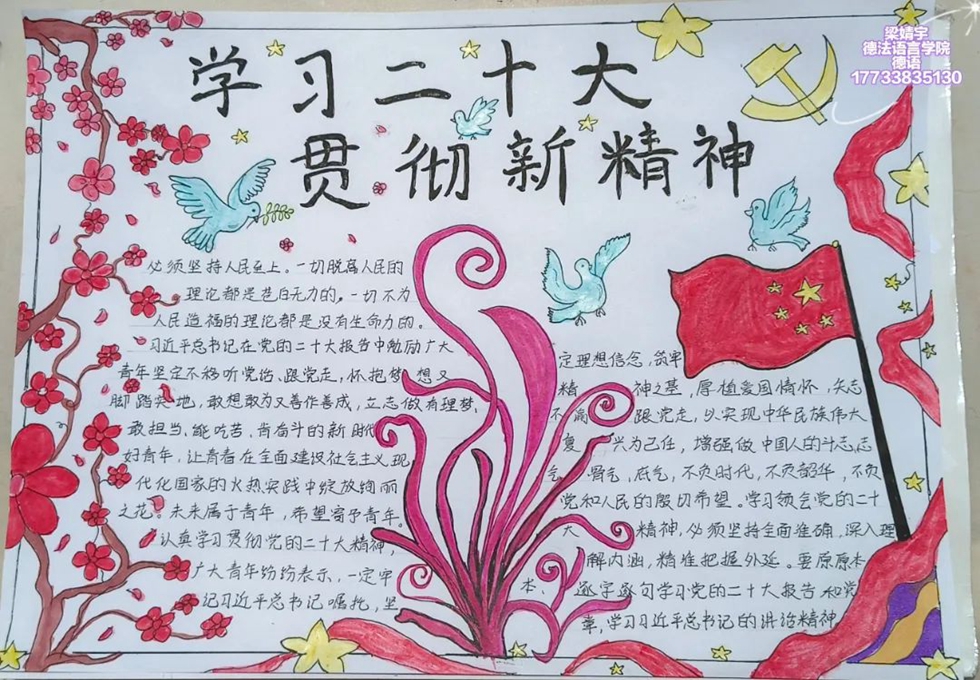 梁婧宇
德法语言学院
德语
17733835130
学习二十大
贯彻新精神
必须坚持人民至上。一切脱离人民的
理论都是苍白无力的，一切不为
人民造福的理论都是没有生命力的。
习近平总书记在党的二十大报告中勉励广大
青年坚定不移听党话、跟党走，怀抱梦想又
脚踏实地，敢想敢为又善作善成，立志做有理想、
敢担当、能吃苦、肯奋斗的新时代
好青年，让青春在全面建设社会主义现
代化国家的火热实践中绽放绚丽
之花。未来属于青年，希望寄予青年。
认真学习贯彻党的二十大精神，
广大青年纷纷表示，一定牢
记习近平总书记嘱托，坚
定理想信念，筑牢
精神之基，厚植爱国情怀，矢志
不渝跟党走，以实现中华民族伟大
复兴为己任，增强做中国人的志
气、骨气、底气，不负时代，不负韶华，不负
党和人民的殷切希望。学习领会党的二十
大精神，必须坚持全面准确，深入理
解内涵，精准把握外延。要原原本
本、逐字逐句学习党的二十大报告和党
章，学习习近平总书记的讲话精神